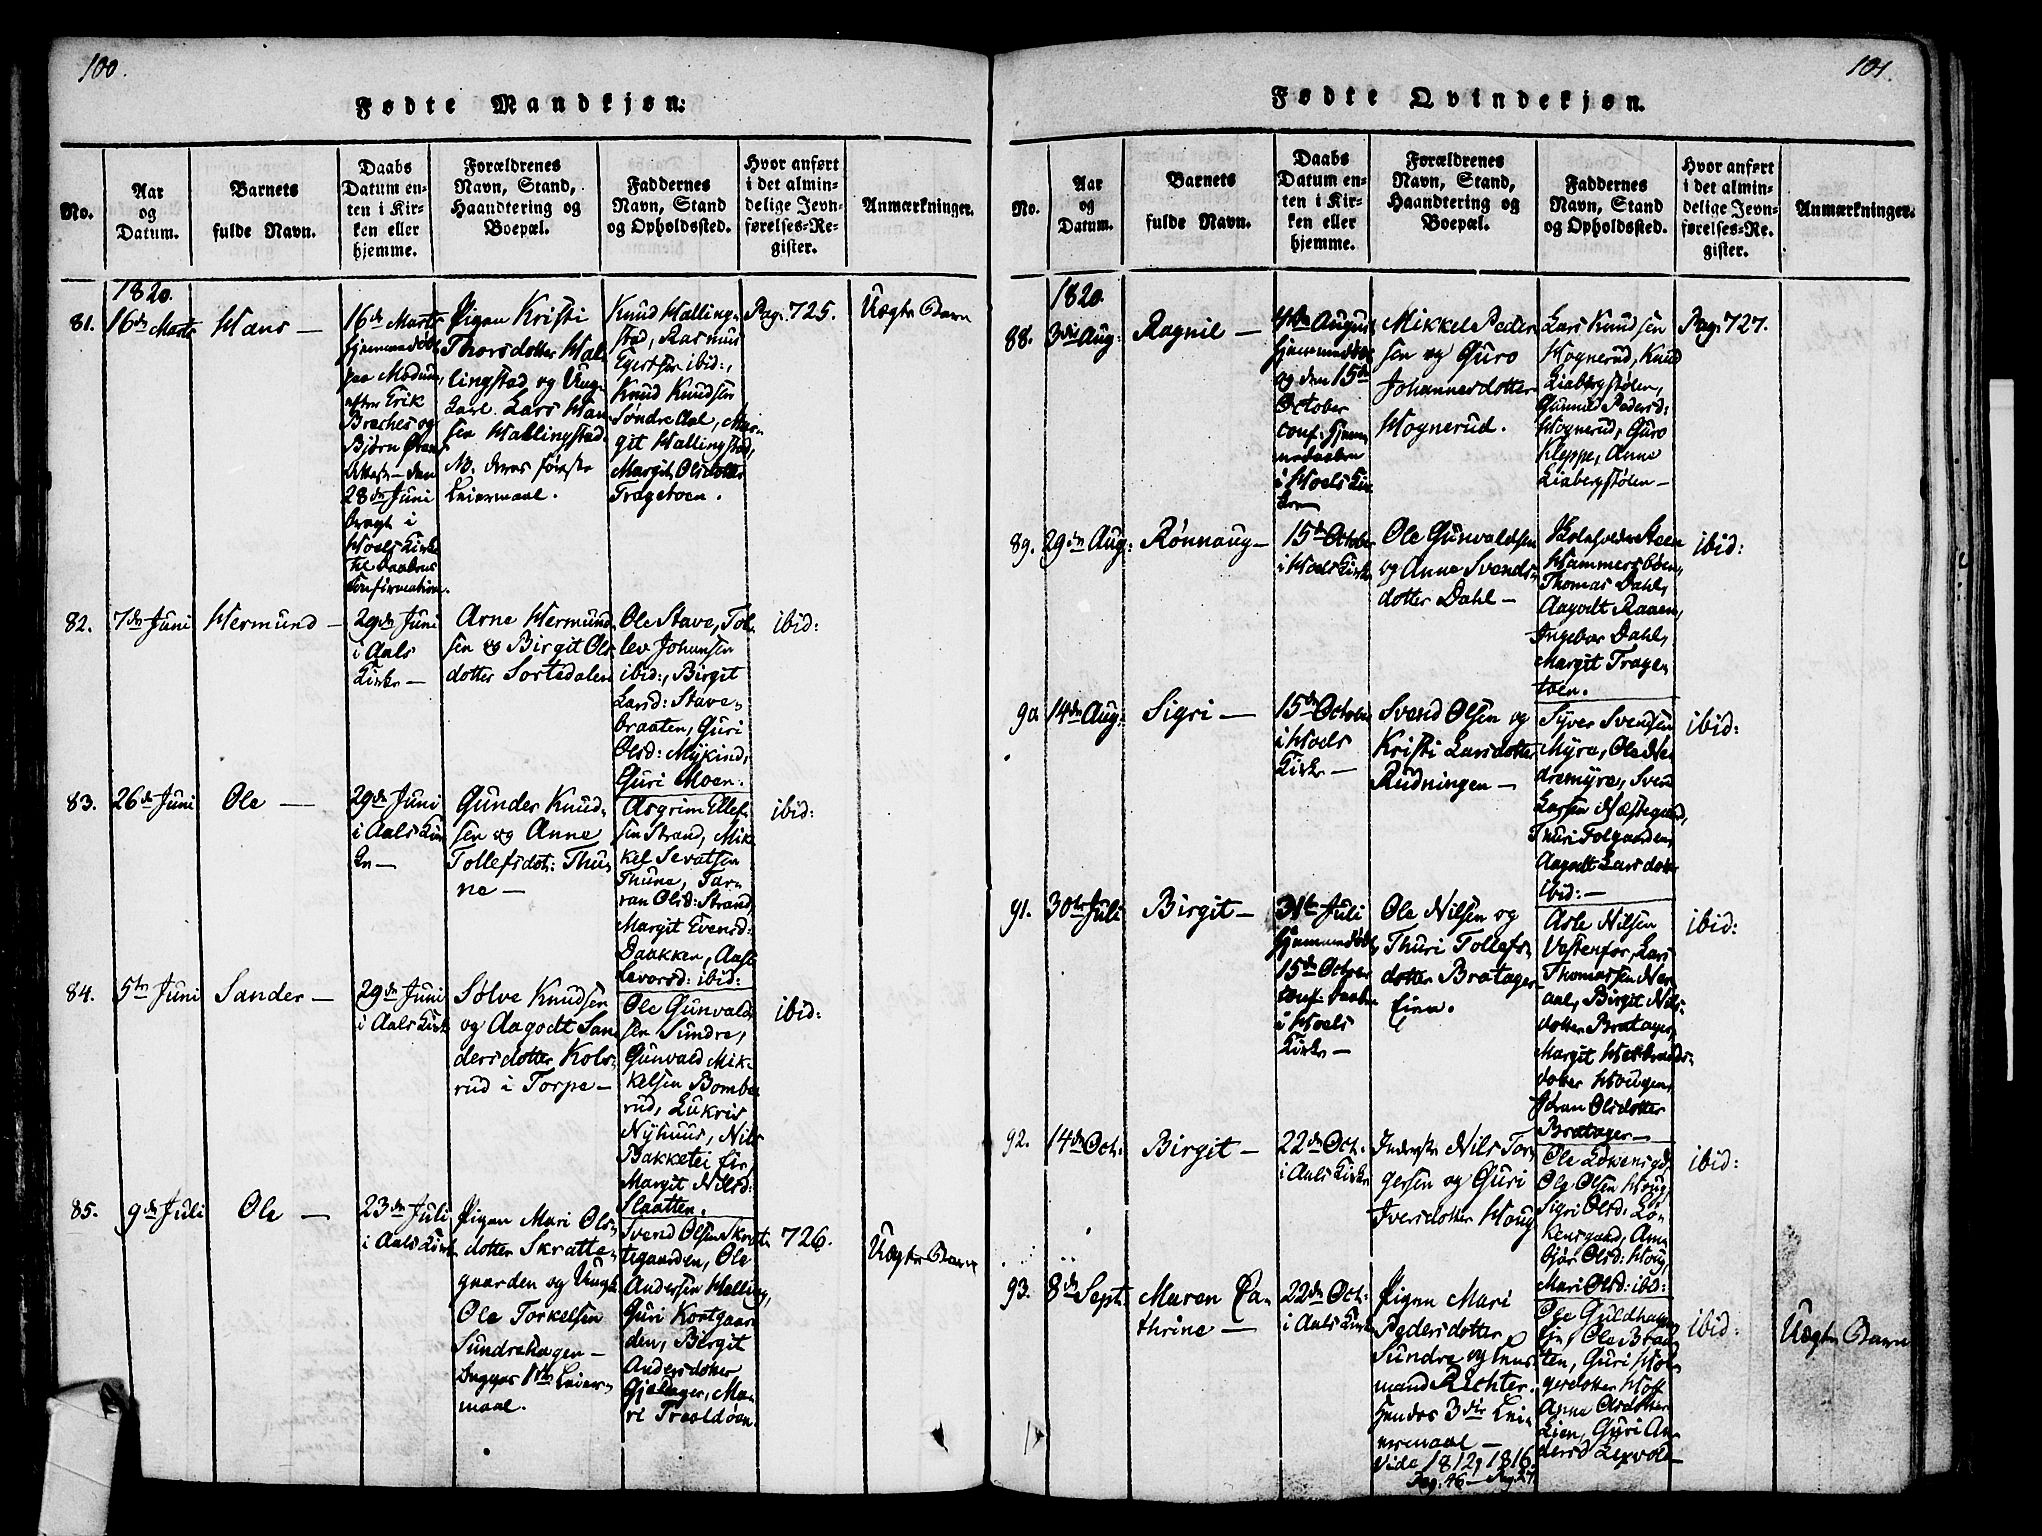 100.
Fødte Mandkjøn:
No.
Aar
og
Datum.
Barnets
fulde Navn.
Daabs
Datum en-
ten i Kir-
ken eller
hjemme.
Forældrenes
Navn, Stand,
Haandtering og
Boepæl.
Faddernes
Navn, Stand
og Opholdssted.
Hvor anført
i det almin-
delige Jevn-
førelses-Re-
gister.
Anmærkninger.
1820.
81.
16de Marts
Hans —
16de Marts
hjemmedøbt
paa Modum,
efter Erik
Braches og
Bjørn
Attest — den
28de Juni
bragt i
Hoels Kirke
til Daabens
Confirmation.
Pigen Kristi
Thorsdotter Hal-
lingstad og Ung-
karl Lars Han-
sen Hallingstad.
NB. deres første
Leiermaal.
Knud Halling-
stad, Rasmus
Egertsen ibid:,
Knud Knudsen
Søndre Aal, Mar-
git Hallingstad,
Margit Olsdotter
Tragetoen.
Pag: 725.
Uægte Barn
82.
7de Juni
Hermund —
29de Juni
i Aals
Kirke —
Arne Hermund-
sen og Birgit Ols-
dotter Sortedalen
Ole Stave, Tol-
lev Johansen
ibid:, Birgit
Larsd: Stave-
braaten, Guri
Olsd: Mykind,
Guri Moen.
ibid:
83.
26de Juni
Ole —
29de Juni
i Aals Kir-
ke —
Gunder Knud-
sen og Anne
Tollefsdot: Thu-
ne —
Asgrim Ellef-
sen Strand, Mik-
kel Sevatsen
Thune, Tar-
ran Olsd: Strand,
Margit Evensd:
Daakken, Aase
Levorsd: ibid:
ibid:
84.
5te Juni
Sander —
29de Juni
i Aals Kirke
Sølve Knudsen
og Aagodt San-
dersdotter Kols-
rud i Torpe —
Ole Gunvald-
sen Sundre,
Gunvald Mik-
kelsen Bombe-
rud, Lukris
Nyhuus, Nils
Bakketeigen,
Margit Nilsd:
Slaatten.
ibid:
85.
9de Juli
Ole —
23de Juli
i Aals Kirke
Pigen Mari Ols-
dotter Skratte-
gaarden og Ungk.
Ole Torkelsen
Sundrehagen —
begges 1ste Leier-
maal.
Svend Olsen Skrat-
tegaarden, Ole
Andersen Halling,
Guri Kortgaar-
den, Birgit
Andersdotter
Gjeldager, Ma-
ri Traaldøen.
726.
Uægte Barn
101.
Fødte Qvindekjøn.
No.
Aar
og
Datum.
Barnets
fulde Navn.
Daabs
Datum en-
ten i Kir-
ken eller
hjemme.
Forældrenes
Navn, Stand,
Haandtering og
Boepæl.
Faddernes
Navn, Stand
og Opholdssted.
Hvor anført
i det almin-
delige Jevn-
førelses-Re-
gister.
Anmærkninger.
1820.
88.
3die Aug:
Ragnil —
4de August
hjemmedøbt
og den 15de
October
conf. hjem-
medaaben
i Hoels Kir-
ken
Mikkel Peder-
sen og Guro
Johannesdotter
Hognerud.
Lars Knudsen
Hognerud, Knud
Liabergstølen,
Gunnil Pedersd:
Hognerud, Guro
Kleppe, Anne
Liabergstølen —
Pag: 727.
89.
29de Aug:
Rønnaug —
15de October
i Hoels Kirke
Ole Gunvaldsen
og Anne Svends-
dotter Dahl —
Hammersbøen,
Thomas Dahl,
Aagodt Raaen,
Ingebor Dahl,
Margit Trage-
toen.
ibid:
90.
14de Aug:
Sigri —
15de October
i Hoels
Kirke —
Svend Olsen og
Kristi Larsdotter
Rudningen —
Syver Svendsen
Myre, Ole Ne-
dremyre, Svend
Larsen Næstegaard,
Thuri Tolgaarden,
Aagodt Larsdotter
ibid: —
ibid:
91.
30te Juli
Birgit —
31te Juli
hjemmedøbt
15de October
conf. Daaben
i Hoels
Kirke —
Ole Nilsen og
Thuri Tollefs-
dotter Bratager-
Eien.
Asle Nilsen
Vestenfor, Lars
Thomassen Ner-
aal, Birgit Nils-
dotter Bratager,
Margit Helbrands-
dotter Hougen,
Jøran Olsdotter
Bratager —
ibid:
92.
14de Oct:
Birgit —
22de Oct:
i Aals Kirke
Inderste Nils Tor-
gersen og Guri
Iversdotter Houg
Ole Løkensgd,
Ole Olsen Houg,
Sigri Olsd: Lø-
kensgaard, Am-
bjør Olsd: Houg,
Mari Olsd: ibid:
ibid:
93.
8de Sept:
Maren Ca-
thrine —
22de Oct:
i Aals Kirke
Pigen Mari
Pedersdotter
Sundre og Lens-
mand Richter.
Hendes 3die Lei-
ermaal —
Vide 1812, 1816.
Pag: 46 — Pag: 27.
Ole Guldhagen,
Ole Braa-
ten, Guri Hol-
gersdotter Hoff
Anne Olsdotter
Lien, Guri An-
dersd
ibid:
Uægte Barn